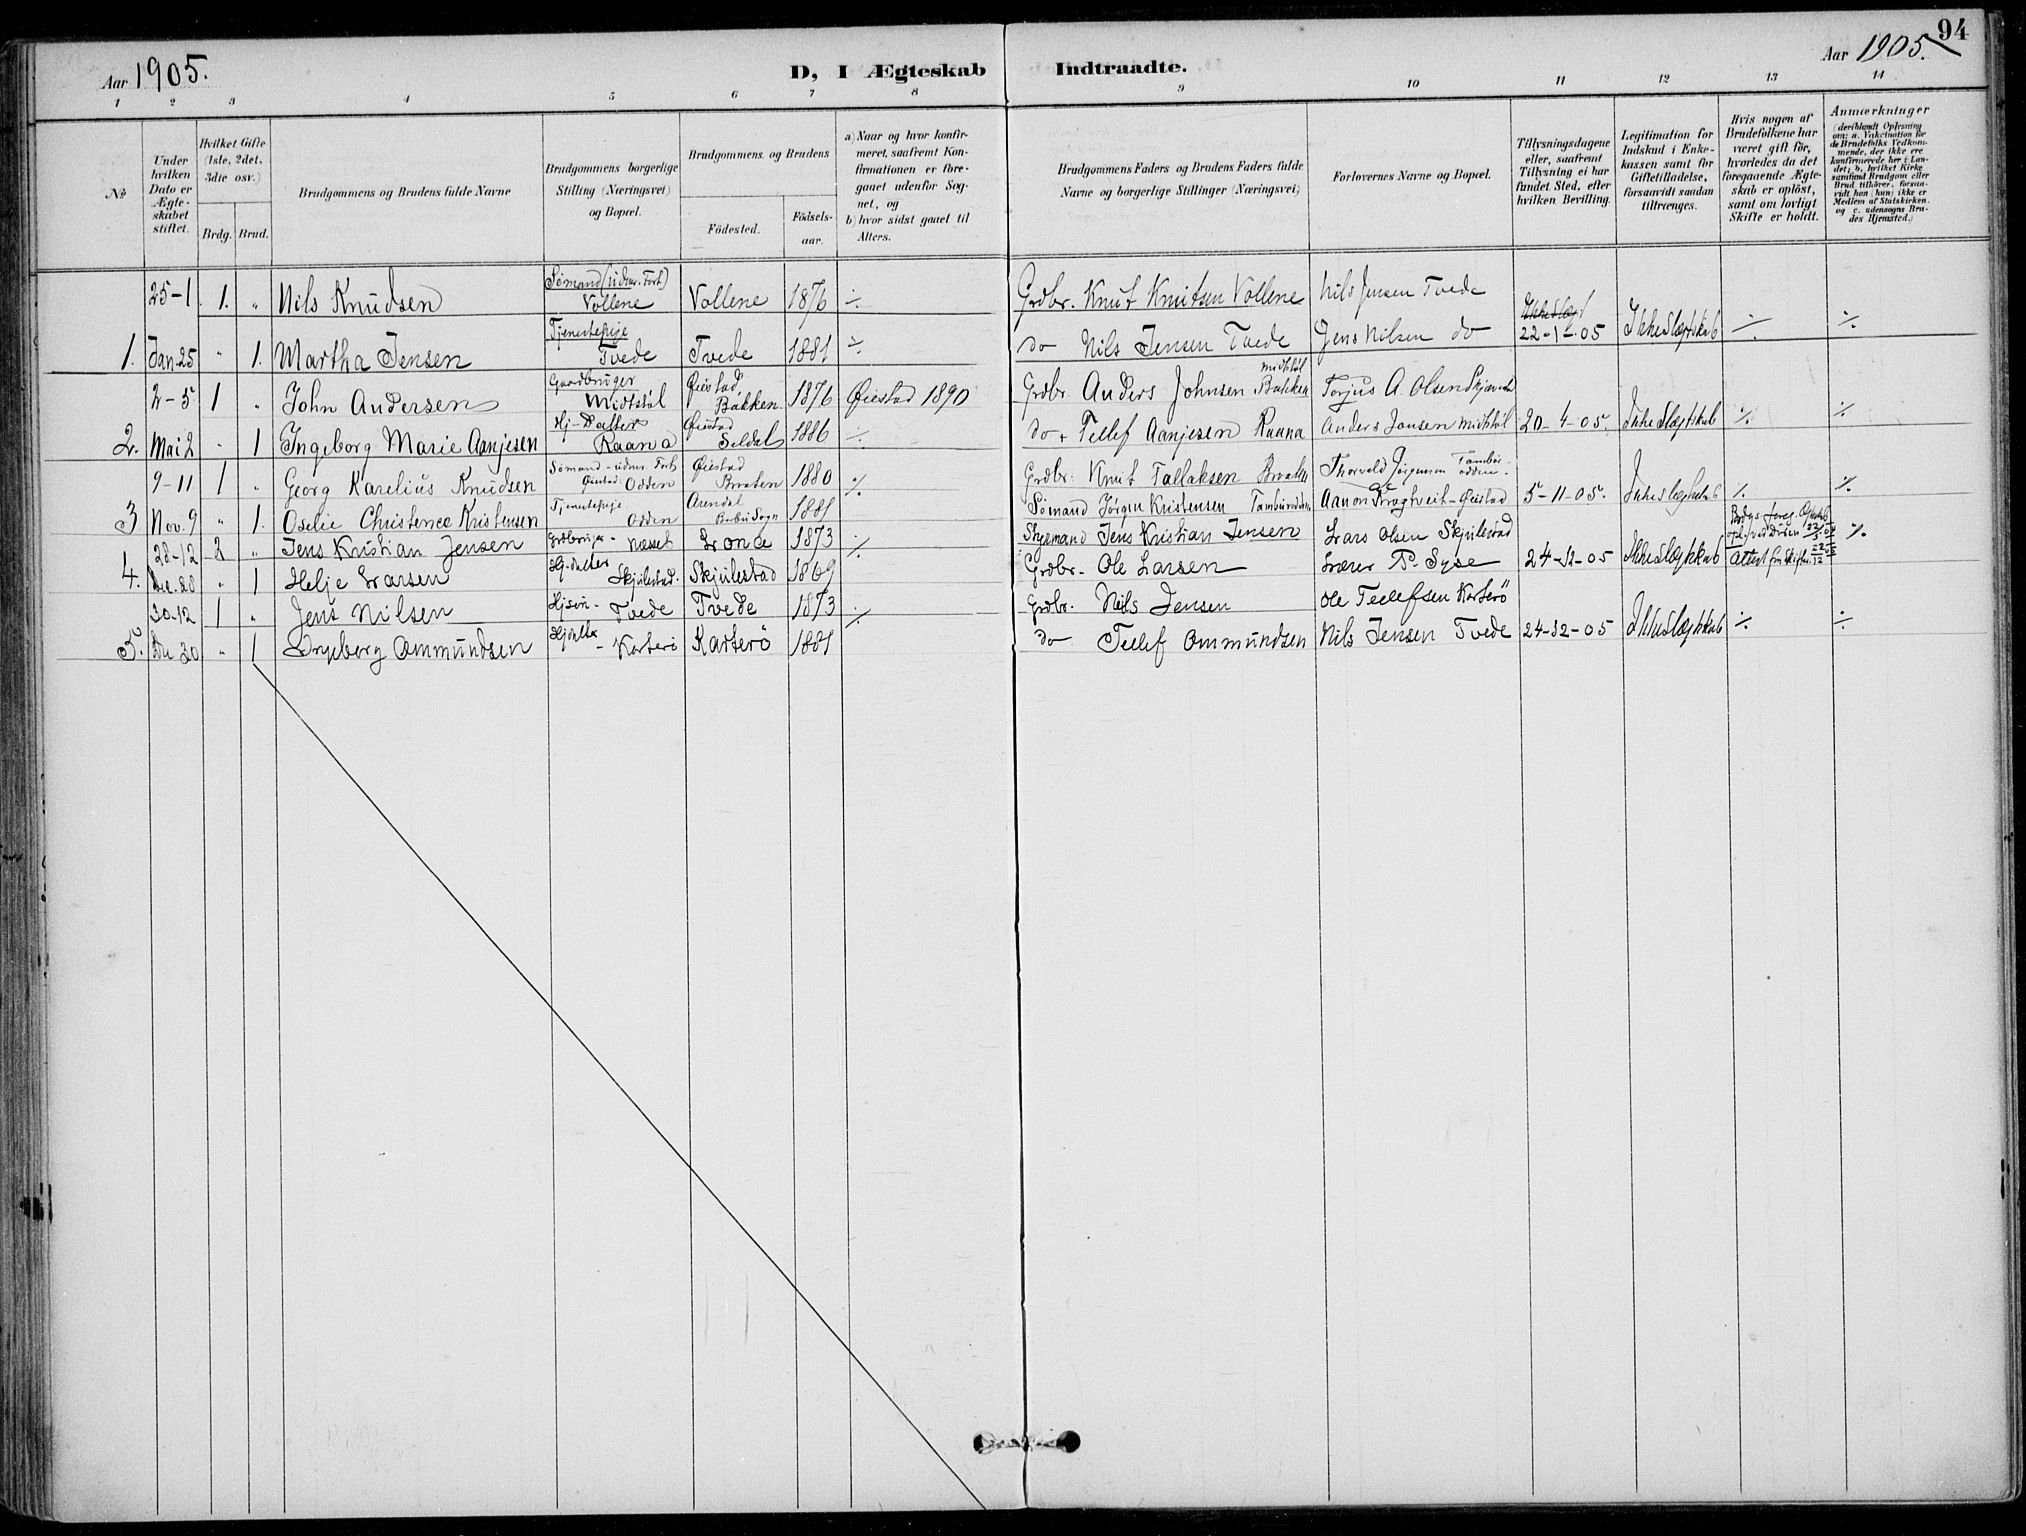 94
Aar 1905.
D, I Ægteskab Indtraadte.
Aar 1905.
1 2 3 4 5 6 7 8 9 10 11 12 13 14
No
Under hvilken Dato er Ægteskabet stiftet.
Hvilket Gifte (1ste, 2det, 3die osv.)
Brdg. Brud.
Brudgommens og Brudens fulde Navne
Brudgommens borgerlige Stilling (Næringsvei) og Bopæl.
Brudgommens og Brudens
Födested. Födsels-aar.
a) Naar og hvor konfirmeret, saafremt Konfirmationen er foregaaet udenfor Sognet, og
b) hvor sidst gaaet til Alters.
Brudgommens Faders og Brudens Faders fulde Navne og borgerlige Stillinger (Næringsvei)
Forlovernes Navne og Bopæl.
Tillysningsdagene eller, saafremt Tillysning ei har fundet Sted, efter hvilken Bevilling.
Legitimation for Indskud i Enkekassen samt for Giftetilladelse, forsaavidt saadan tiltrænges.
Hvis nogen af Brudefolkene har været gift för, hvorledes da det foregaaende Ægteskab er oplöst, samt om lovligt Skifte er holdt.
Anmærkninger
(deriblandt Oplysning om: a. Vakcination for de Brudefolks Vedkommende, der ikke ere konfirmerede her i Landet; b. hvilket Kirkesamfund Brudgom eller Brud tilhører, forsaavidt han (hun) ikke er Medlem af Statskirken, og c. udensogns Brudes Hjemsted.)
25-1 1. „ Nils Knudsen Sömand (udenr. Fart) Vollene Vollene 1876 ÷ Grdbr. Knut Knutsen Vollene Nils Jensen Tvede
1. Jan. 25 „ 1. Martha Jensen Tjenestepige Tvede Tvede 1881 ÷ do Nils Jensen Tvede Jens Nilsen do 22-1-05 Ikke Slægtskab ÷ ÷
2-5 1 „ John Andersen Gaardbruger Midtstøl Øiestad Bakken 1876 Øiestad 1890 Grdbr. Anders Johnsen Bakken Torjus A. Olsen
2. Mai 2 „ 1 Ingeborg Marie Aanjesen Hj-Datter Raana Øiestad Seldal 1886 ÷ do. Tellef Aanjesen Raana Anders Jonsen 20-4-05. Ikke Slægtskab ÷ ÷
9-11 1 „ Georg Karelius Knudsen Sömand - udenr. Fart Øiestad Odden Øiestad Braaten 1880 ÷ Grdbr. Knut Tallaksen Braaten Thorvald Jörgensen
3 Nov. 9 „ 1. Oselie Christence Kristensen Tjenestepige Odden Arendal Barbu Sogn 1881 Sömand Jørgen Kristensen Aanon Øiestad 5-11-05. Ikke Slægtskab ÷ ÷
28-12 2 „ Jens Kristian Jensen Grdbruger- Næsset 1873 ÷ Jens Kristian Jensen Lars Olsen Skjulestad
4. Dec. 28 „ 1 Helje Larsen Hj-datter Skjulestad. Skjulestad 1869 Grdbr. Ole Larsen Lærer P. Syse 24-12-05 Ikke Slægtskab Attest fra Skifter. ÷
30-12 1 „ Jens Nilsen Hjsön- Tvede Tvede 1873 ÷ Grdbr. Nils Jensen Ole Tellefsen Karterö
5. De 30 „ 1 Ingeborg Ommundsen Hjdatter - Karterö Karterö 1881 do Tellef Ommundsen Nils Jensen Tvede 24-12-05 Ikke Slægtskab ÷ ÷